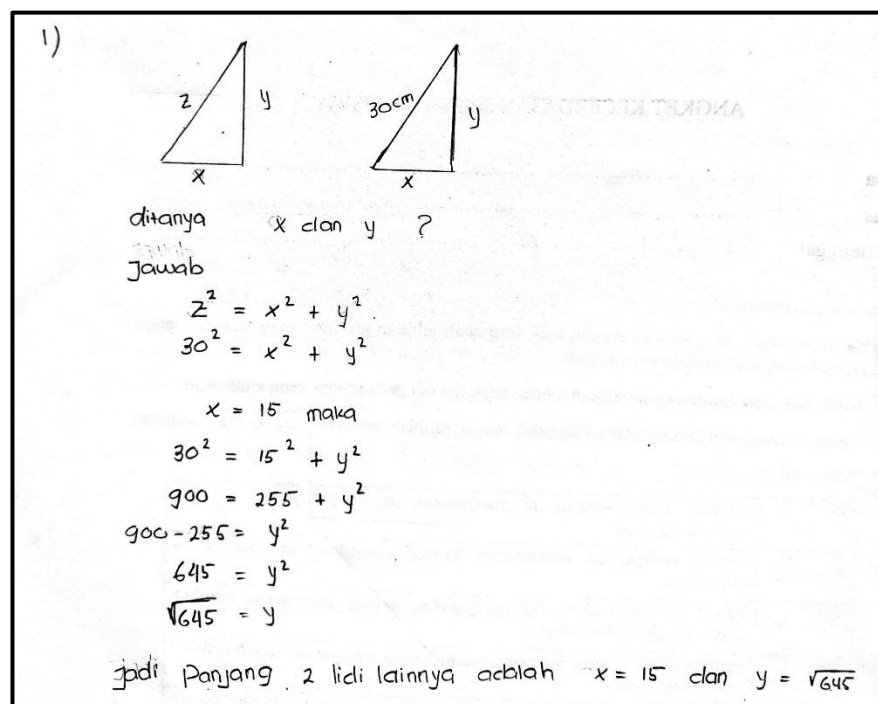 1)
z y
x
30cm y
x
ditanya x dan y ?
Jawab
z² = x² + y²
30² = x² + y²
x = 15 maka
30² = 15² + y²
900 = 255 + y²
900 - 255 = y²
645 = y²
√645 = y
jadi Panjang 2 lidi lainnya adalah x = 15 dan y = √645